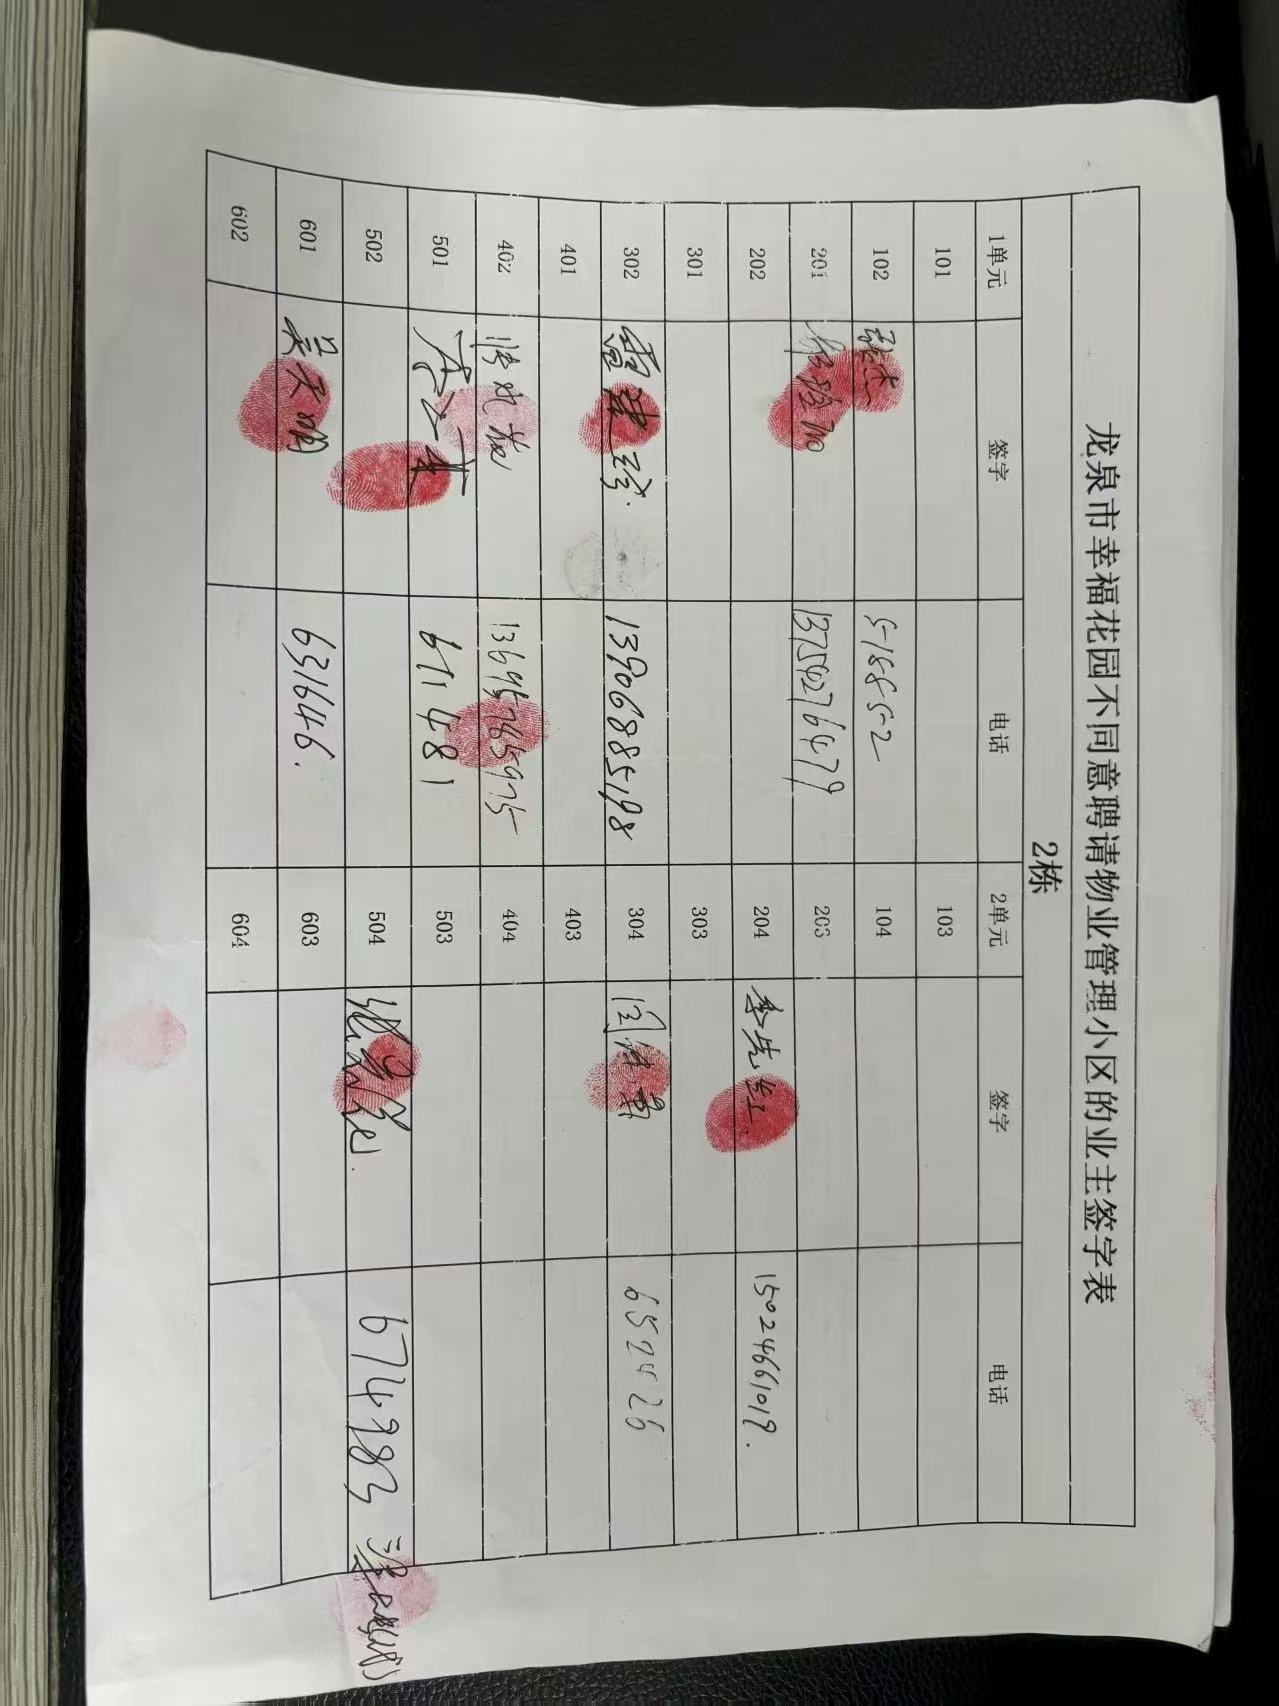 龙泉市幸福花园不同意聘请物业管理小区的业主签字表
2栋
1单元 签字 电话 2单元 签字 电话
101 103
102 张杰 518852 104
201 13758276479 203
202 204 季先红 15024661019.
301 303
302 雷建珍. 13906885198 304 652426
401 403
402 13695785975 404
501 671481 503
502 504 674983
601 吴天明 631646. 603
602 604